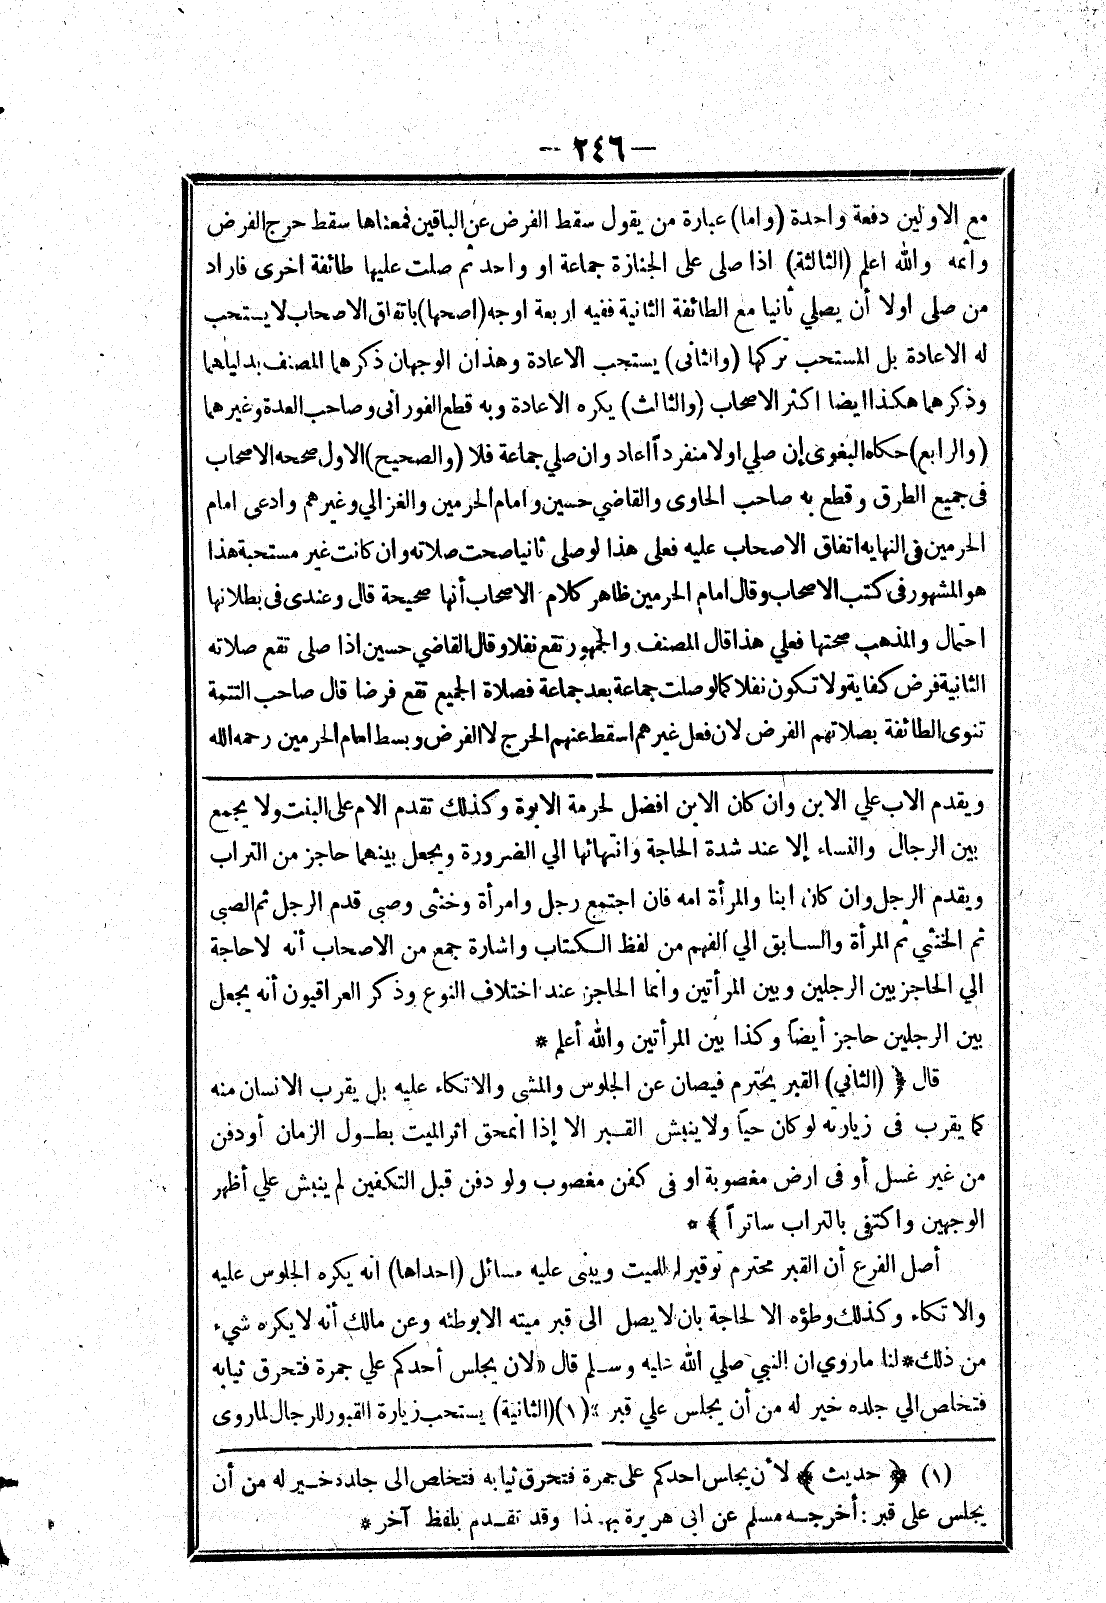 — ٢٤٦ —
مع الاولين دفعة واحدة (واما) عبارة من يقول سقط الفرض عن الباقين فمعناها سقط حرج الفرض
واثمه والله اعلم (الثالثة) اذا صلى على الجنازة جماعة او واحد ثم صلت عليها طائفة اخرى فاراد
من صلى اولا أن يصلي ثانيا مع الطائفة الثانية ففيه اربعة اوجه (اصحها) باتفاق الاصحاب لا يستحب
له الاعادة بل المستحب تركها (والثانى) يستحب الاعادة وهذان الوجهان ذكرهما المصنف بدليلهما
وذكرهما هكذا ايضا اكثر الاصحاب (والثالث) يكره الاعادة وبه قطع الفورانى وصاحب العدة وغيرهما
(والرابع) حكاه البغوى إن صلي اولا منفرداً اعاد وان صلي جماعة فلا (والصحيح) الاول صححه الاصحاب
فى جميع الطرق وقطع به صاحب الحاوى والقاضي حسين وامام الحرمين والغزالي وغيرهم وادعى امام
الحرمين فى النهايه اتفاق الاصحاب عليه فعلى هذا لو صلى ثانيا صحت صلاته وان كانت غير مستحبة هذا
هو المشهور فى كتب الاصحاب وقال امام الحرمين ظاهر كلام الاصحاب أنها صحيحة قال وعندى فى بطلانها
احتمال والمذهب صحتها فعلي هذا قال المصنف والجمهور تقع نفلا وقال القاضي حسين اذا صلى تقع صلاته
الثانية فرض كفاية ولا تكون نفلا كما لو صلت جماعة بعد جماعة فصلاة الجميع تقع فرضا قال صاحب التتمة
تنوى الطائفة بصلاتهم الفرض لان فعل غيرهم اسقط عنهم الحرج لا الفرض وبسط امام الحرمين رحمه الله
ويقدم الاب علي الابن وان كان الابن افضل لحرمة الابوة وكذلك تقدم الام على البنت ولا يجمع
بين الرجال والنساء إلا عند شدة الحاجة وانتهائها الي الضرورة ويجعل بينهما حاجز من التراب
ويقدم الرجل وان كان ابنا والمرأة امه فان اجتمع رجل وامرأة وخنثى وصبى قدم الرجل ثم الصبي
ثم الخنثي ثم المرأة والسابق الي الفهم من لفظ الكتاب واشارة جمع من الاصحاب أنه لا حاجة
الي الحاجز بين الرجلين وبين المرأتين وانما الحاجز عند اختلاف النوع وذكر العراقيون أنه يجعل
بين الرجلين حاجز أيضاً وكذا بين المرأتين والله أعلم *
قال ﴿ (الثاني) القبر يحترم فيصان عن الجلوس والمشى والاتكاء عليه بل يقرب الانسان منه
كما يقرب فى زيارته لو كان حياً ولا ينبش القبر الا إذا انمحق اثر الميت بطول الزمان أو دفن
من غير غسل أو فى ارض مغصوبة او فى كفن مغصوب ولو دفن قبل التكفين لم ينبش علي أظهر
الوجهين واكتفى بالتراب ساتراً ﴾ *
أصل الفرع أن القبر محترم توقيرا للميت ويبنى عليه مسائل (احداها) انه يكره الجلوس عليه
والاتكاء وكذلك وطؤه الا لحاجة بان لا يصل الى قبر ميته الا بوطئه وعن مالك أنه لا يكره شيء
من ذلك * لنا ماروي ان النبي صلي الله عليه وسلم قال «لان يجلس أحدكم علي جمرة فتحرق ثيابه
فتخلص الي جلده خير له من أن يجلس علي قبر » (١) (الثانية) يستحب زيارة القبور للرجال لما روى
(١) ﴿ حديث ﴾ لأن يجلس احدكم على جمرة فتحرق ثيابه فتخلص الى جلده خير له من أن
يجلس على قبر : أخرجه مسلم عن ابى هريرة بهذا وقد تقدم بلفظ آخر *